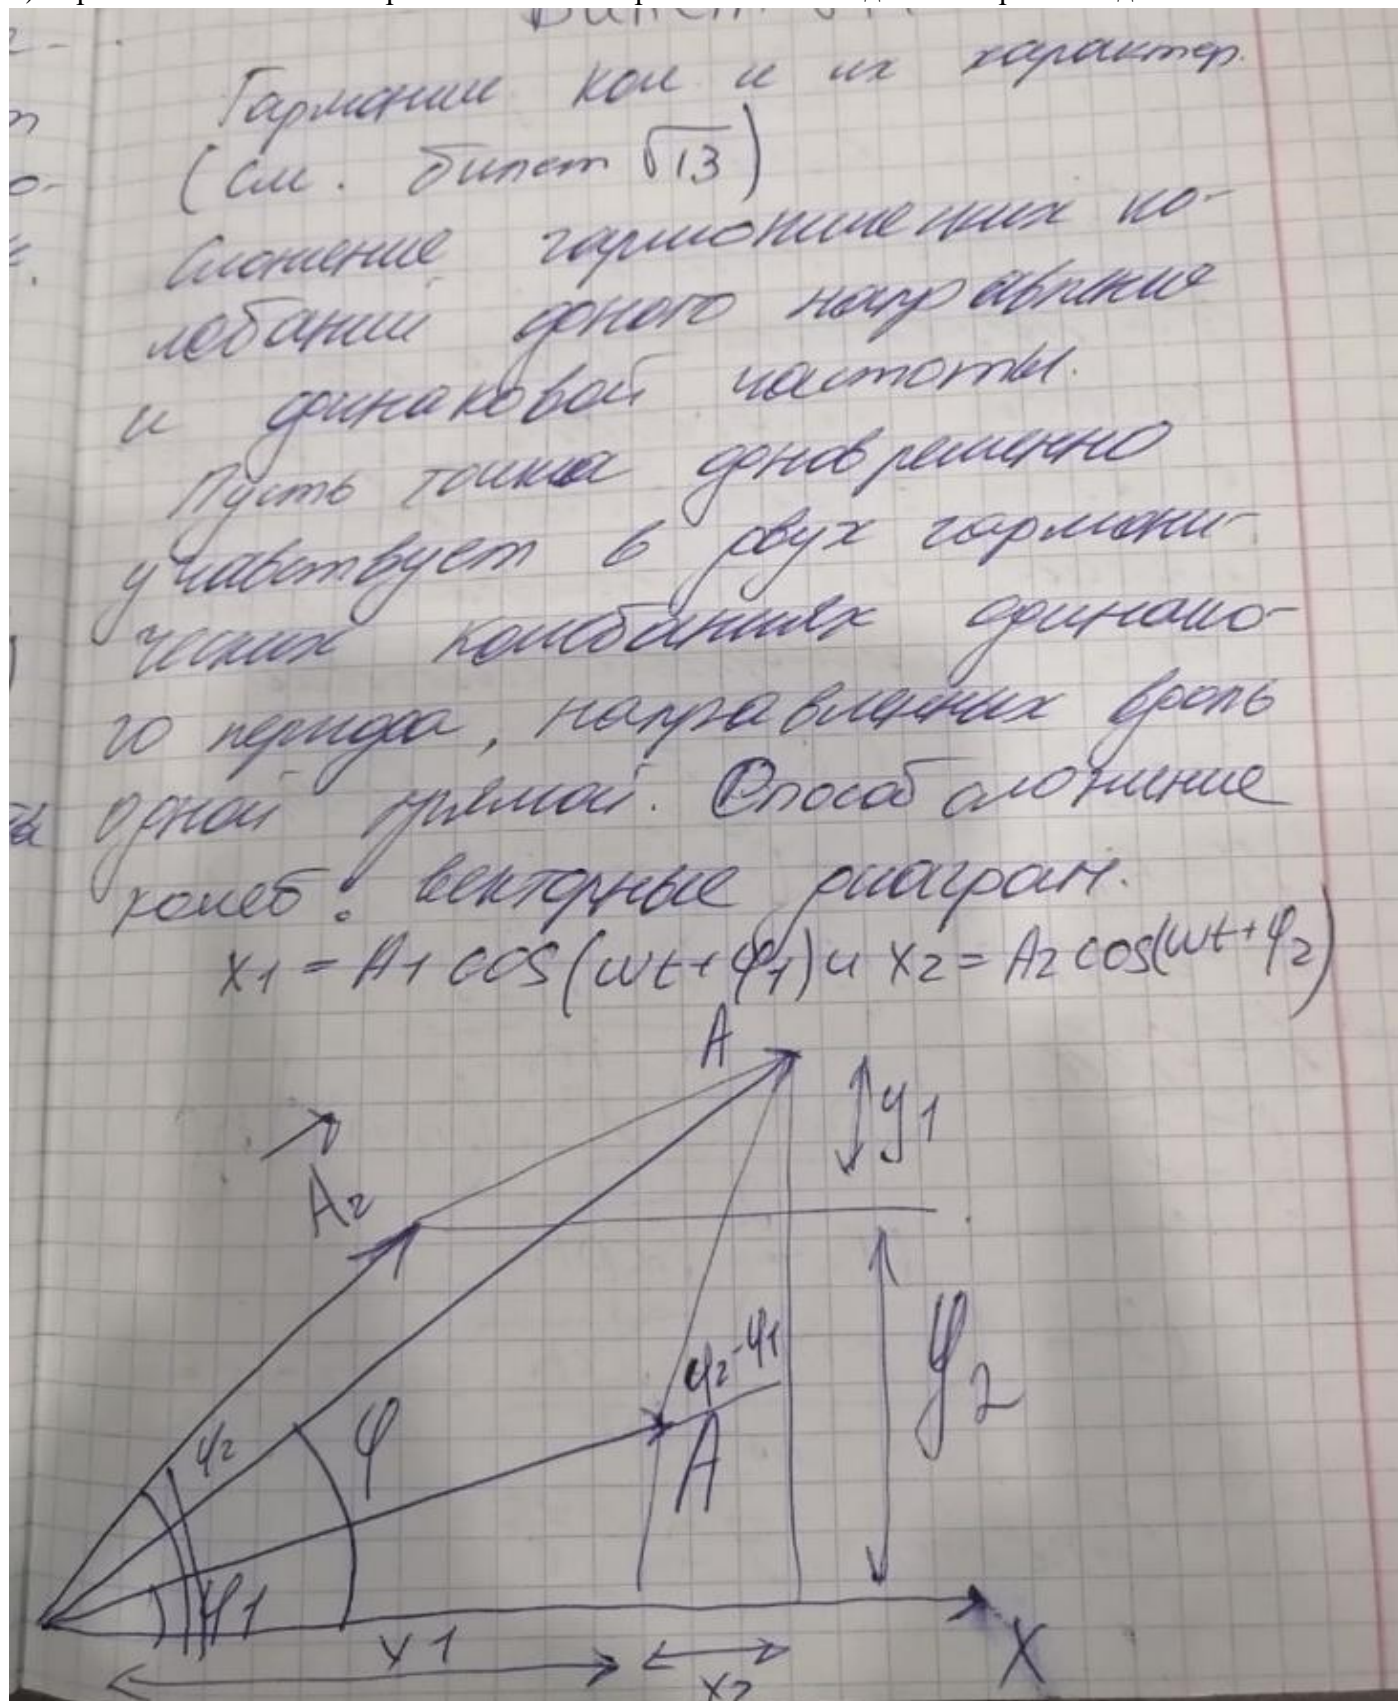 Билет
Гармонич кол и их характер.
(см. билет √13)
Сложение гармонических ко-
лебаний одного направления
и одинаковой частоты.
Пусть точка одновременно
участвует в двух гармони-
ческих колебаниях одинако-
го периода, направленных вдоль
одной прямой. Способ сложение
колеб: векторные диаграм.
x1 = A1 cos(ωt+φ1) и x2 = A2 cos(ωt+φ2)
A
y1
A2
φ2-φ1
y2
φ2
φ
A
φ1
x1
x2
X